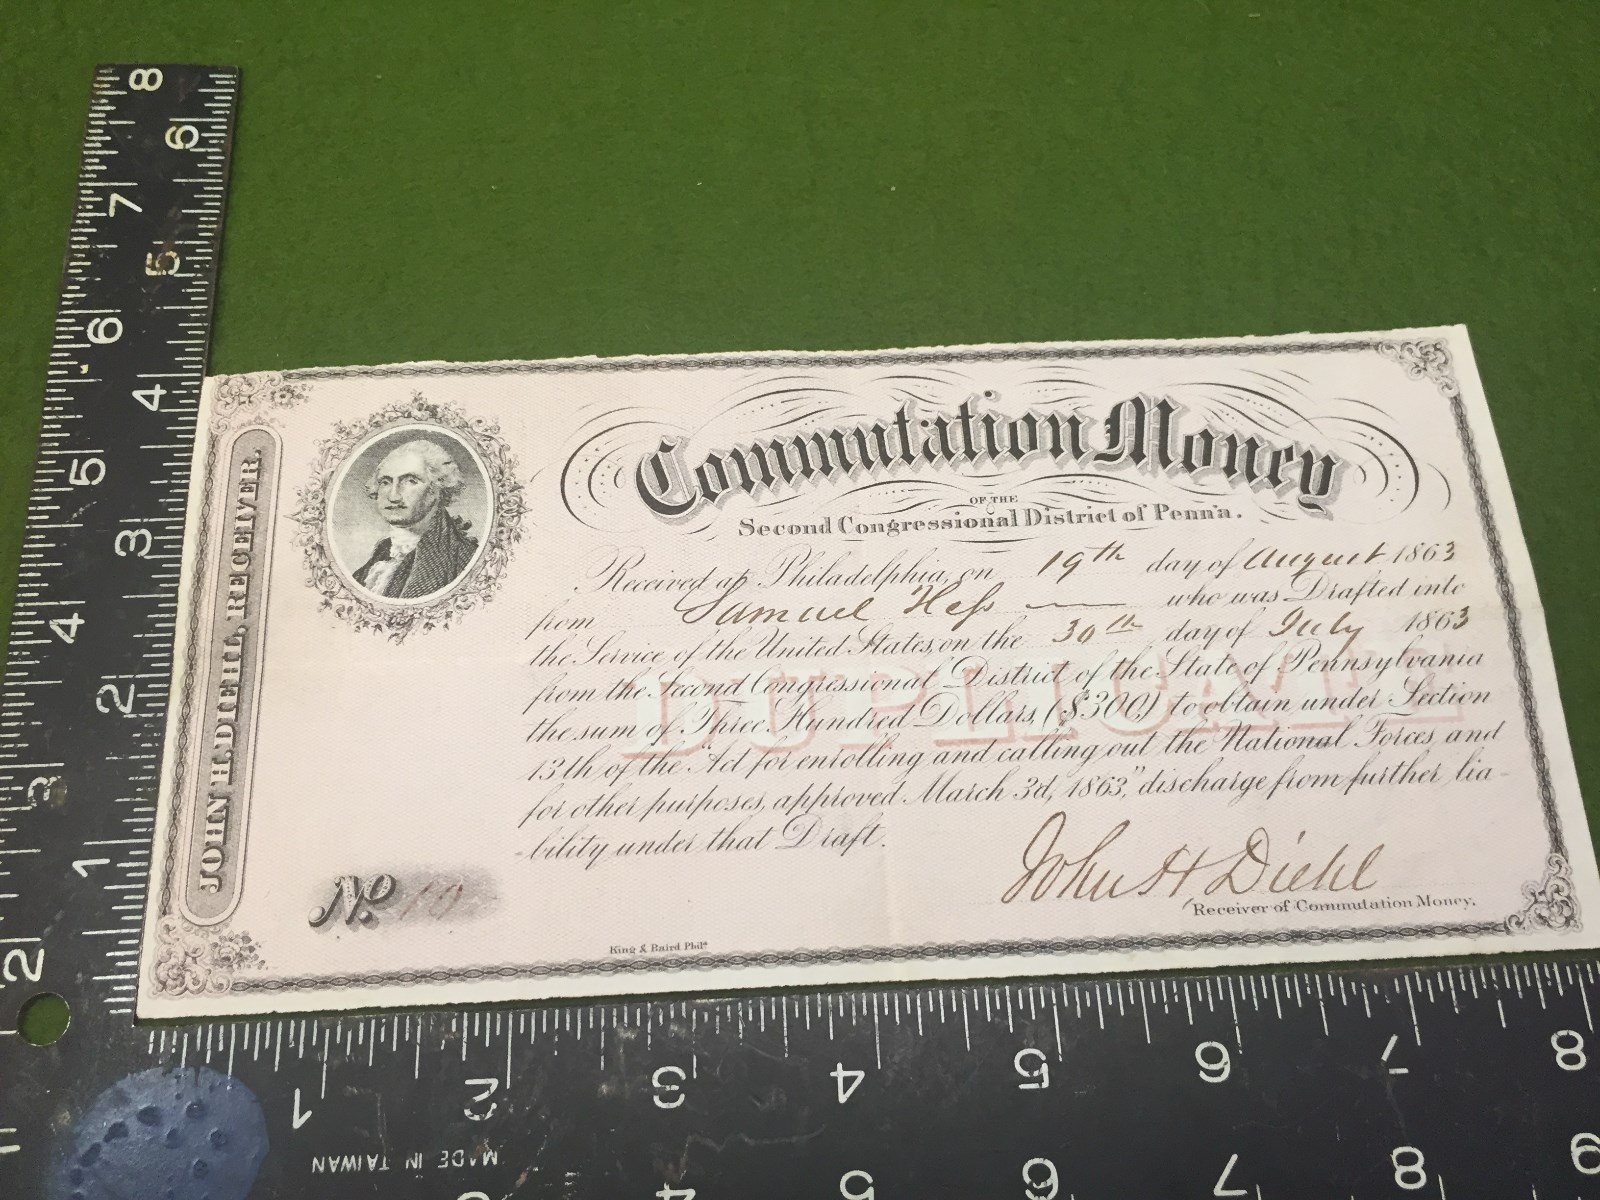 Commutation Money
OF THE
Second Congressional District of Penn'a.
JOHN H. DIEHL, RECEIVER.
Received at Philadelphia, on 19th day of August 1863
from Samuel Hess who was Drafted into
the Service of the United States, on the 30th day of July 1863
from the Second Congressional District of the State of Pennsylvania
the sum of Three Hundred Dollars, ($300) to obtain under Section
13th of the "Act for enrolling and calling out the National Forces and
for other purposes, approved March 3d, 1863," discharge from further lia-
-bility under that Draft.
DUPLICATE
John H Diehl
Receiver of Commutation Money.
No. 10
King & Baird Phila
8
7
6
5
4
3
2
1
6
5
4
3
2
1
1 2 3 4 5 6 7 8
MADE IN TAIWAN
4 5 6 7 8 9